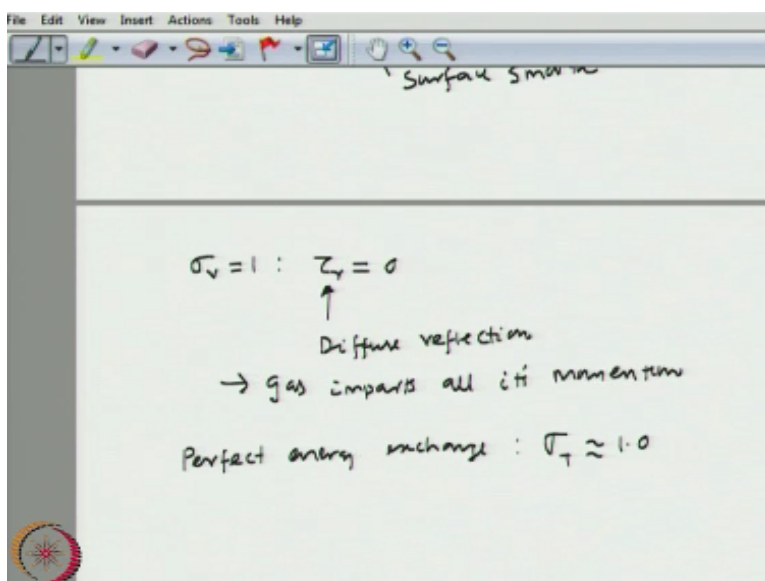 File Edit View Insert Actions Tools Help
Surface smooth
σᵥ = 1 : τᵣ = 0
↑
Diffuse reflection
→ gas imparts all its momentum
Perfect energy exchange : σ_T ≈ 1.0